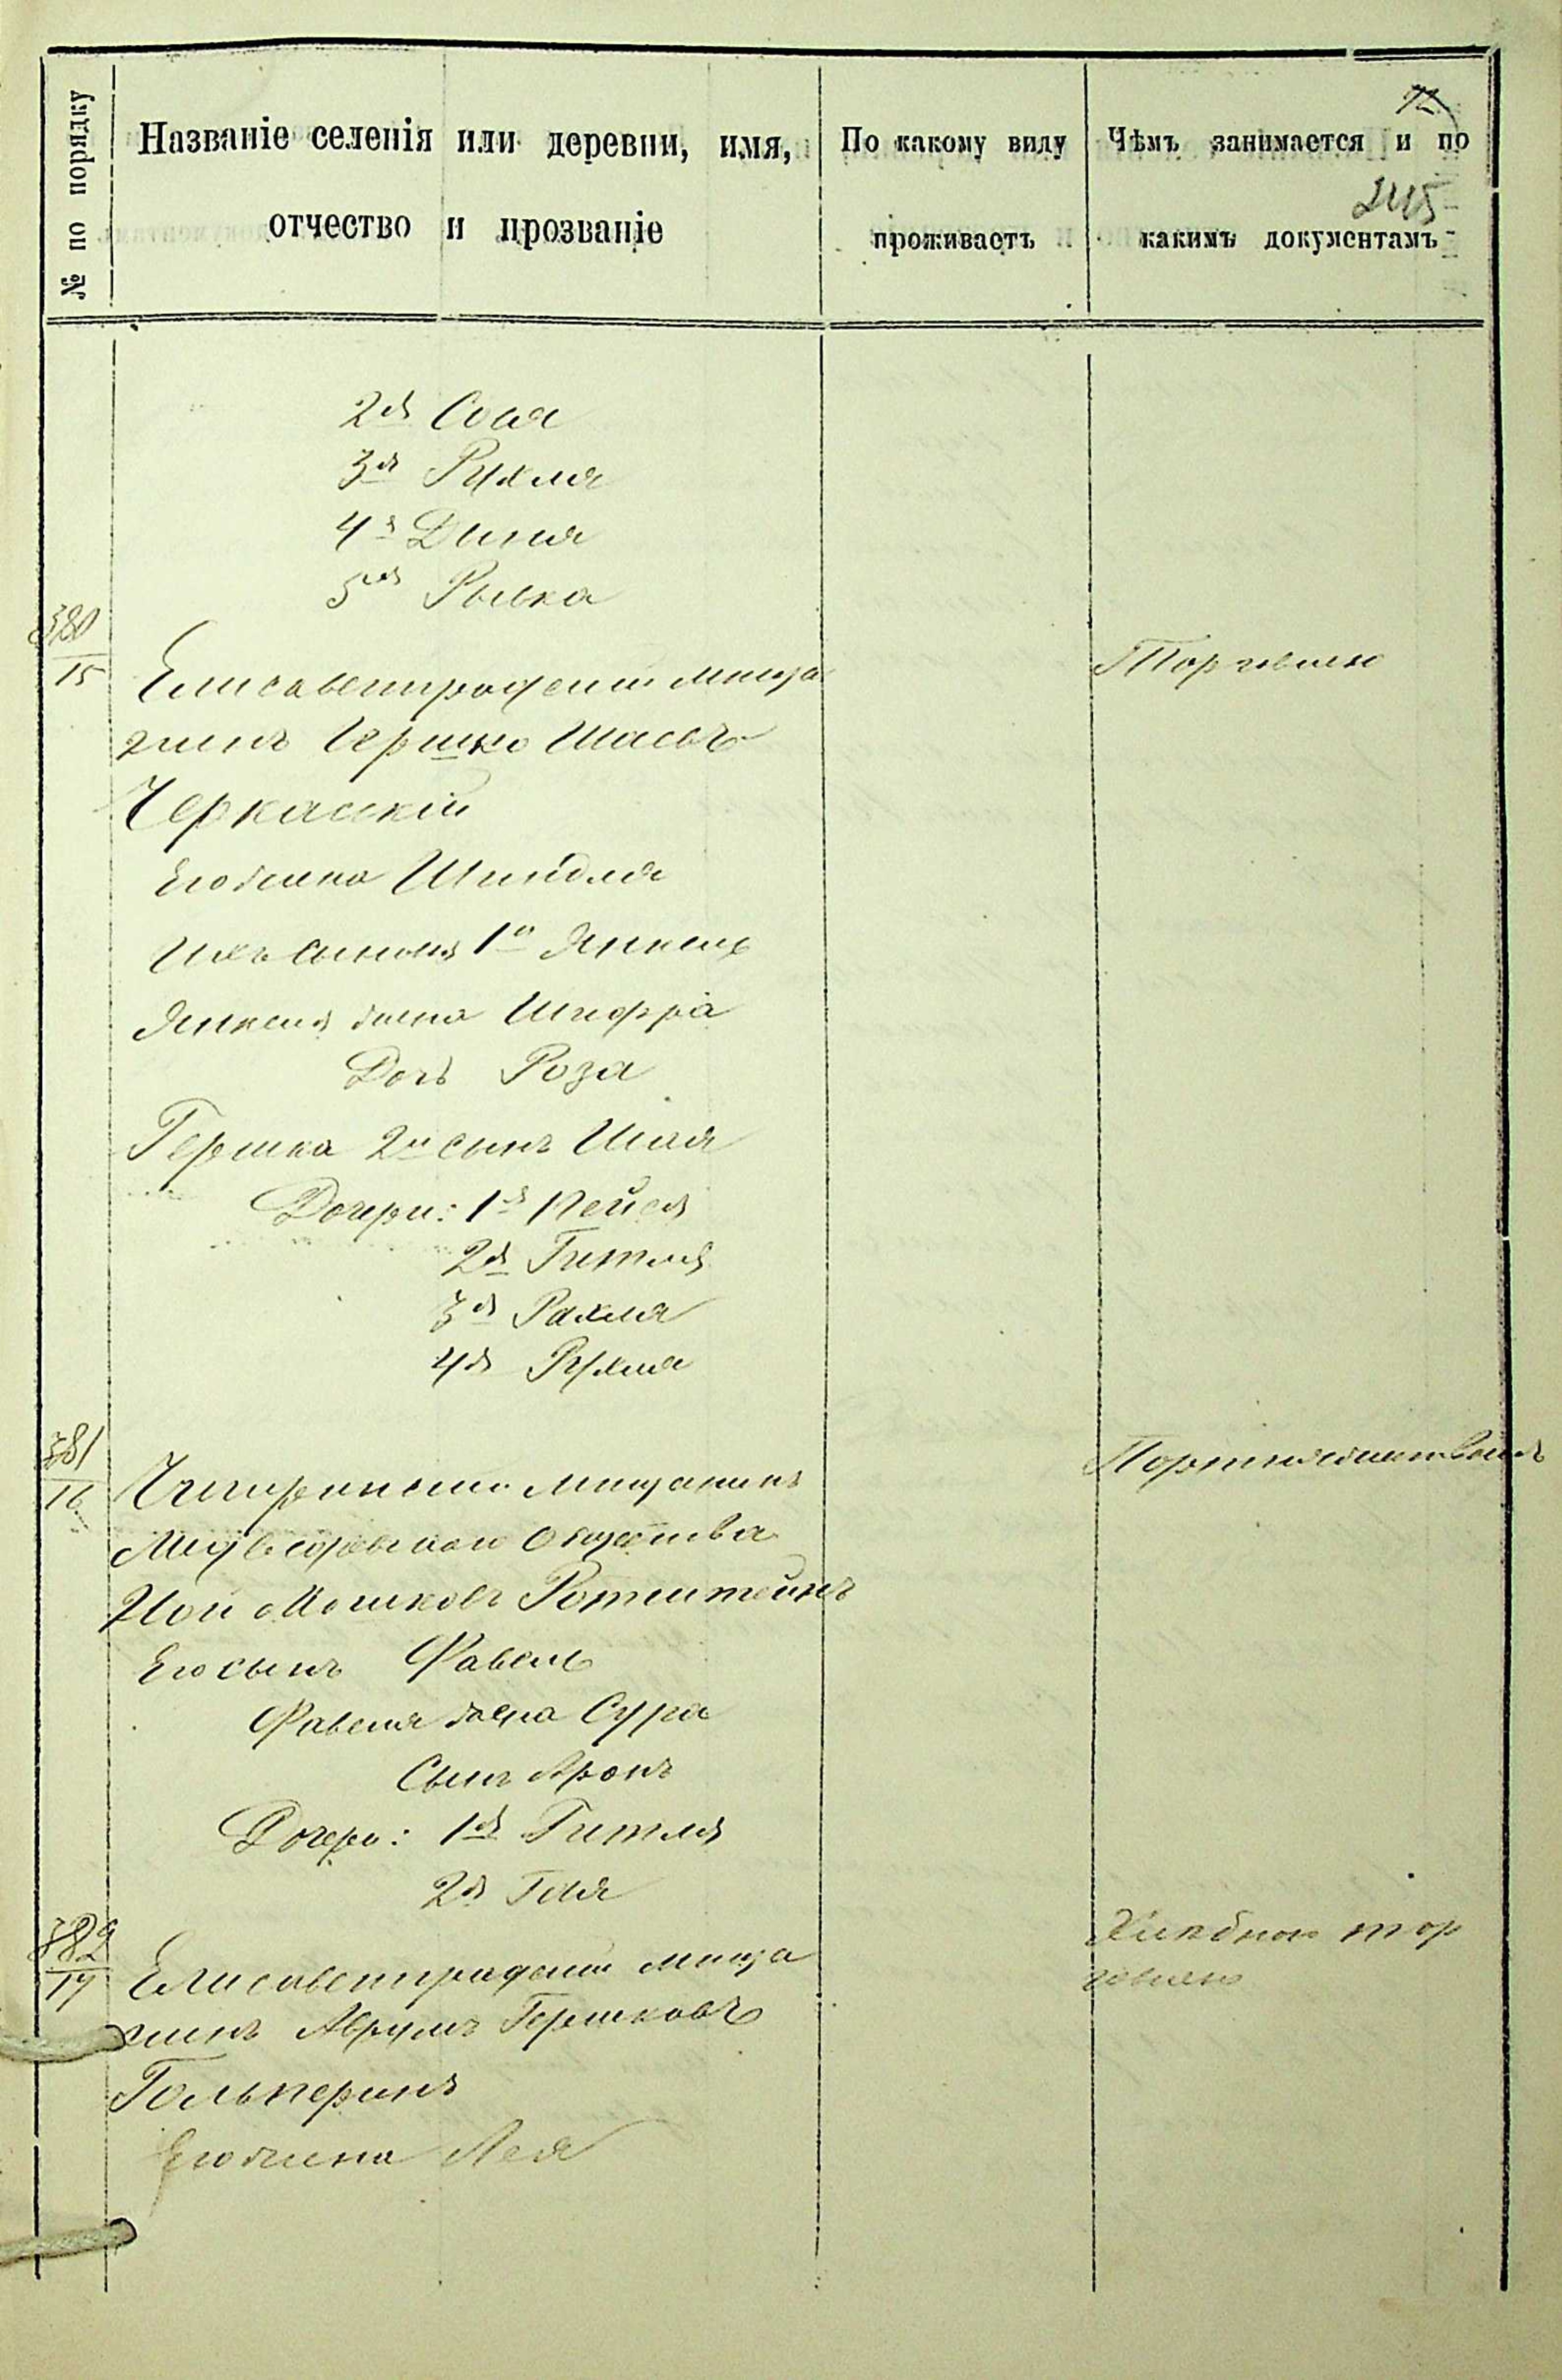 № по порядку
Названіе селенія или деревни, имя,
отчество и прозваніе
По какому виду
проживаетъ
Чѣмъ занимается и по
какимъ документамъ
245
2я Сося
3я Рухля
4я Диня
5ая Рывка
380
15
Елисаветградскій мѣща
нинъ Гершко Шаевъ
Черкаскій
Торговлею
Его жена Шиндля
Ихъ сыновья 1й Янкель
Янкеля жена Шифра
Дочь Роза
Гершка 2й сынъ Шая
Дочери: 1я Нейся
2я Гитля
3я Рахля
4я Рухля
381
16
Чигиринскій мѣщанинъ
Медведовскаго Общества
Мошковъ Ротштейнъ
Портняжествомъ
Его сынъ Фавель
Фавеля жена Сура
Сынъ Аронъ
Дочери: 1я Гитля
2я Гися
382
17
Елисаветградскій мѣща
нинъ Аврумъ Гершковъ
Гольперинъ
Хлѣбною тор
говлею
Его жена Лея